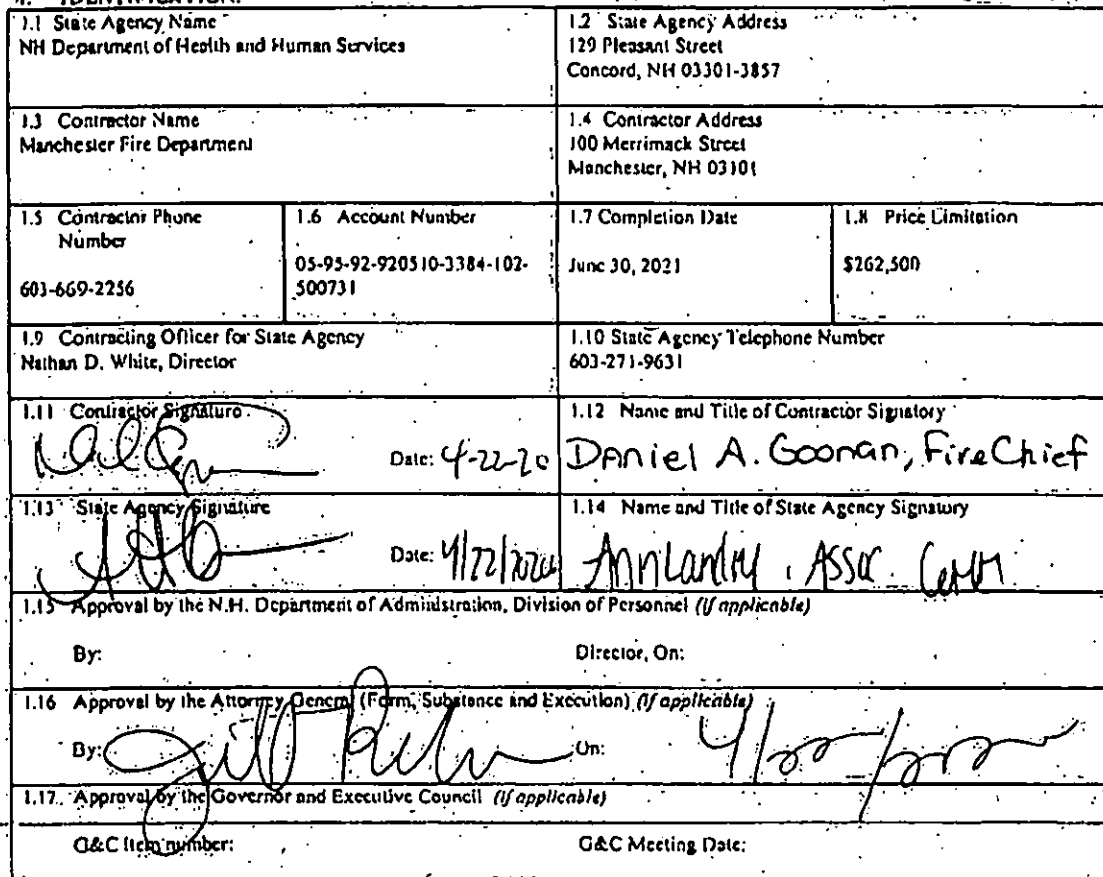 1. IDENTIFICATION.
1.1 State Agency Name
NH Department of Health and Human Services
1.2 State Agency Address
129 Pleasant Street
Concord, NH 03301-3857
1.3 Contractor Name
Manchester Fire Department
1.4 Contractor Address
100 Merrimack Street
Manchester, NH 03101
1.5 Contractor Phone
Number
603-669-2256
1.6 Account Number
05-95-92-920510-3384-102-
500731
1.7 Completion Date
June 30, 2021
1.8 Price Limitation
$262,500
1.9 Contracting Officer for State Agency
Nathan D. White, Director
1.10 State Agency Telephone Number
603-271-9631
1.11 Contractor Signature
Date: 4-22-20
1.12 Name and Title of Contractor Signatory
Daniel A. Goonan, Fire Chief
1.13 State Agency Signature
Date: 4/22/2020
1.14 Name and Title of State Agency Signatory
Ann Landry, Assoc.
1.15 Approval by the N.H. Department of Administration, Division of Personnel (if applicable)
By: Director, On:
1.16 Approval by the Attorney General (Form, Substance and Execution) (if applicable)
By: On:
1.17. Approval by the Governor and Executive Council (if applicable)
G&C Item number: G&C Meeting Date: